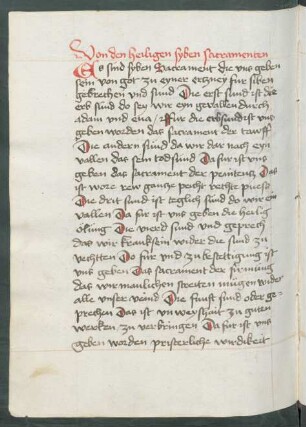 Von den heiligen syben sacramenten
Es sind syben Sacrament die vns geben
sein von got zu eyner erczney fur siben
gebrechen vnd sund Die erst sund ist die
erb sund do sey wir eyn gevallen durch
adam vnd eua / fur die erbsund ist vns
geben worden das sacrament der tawff
Die andern sund da wir dar nach eyn
vallen das sein todsund Da fur ist vns
geben das sacrament der penitencz Das
ist wore rew gancz peicht rechte puess
Die drit sund ist teglich sund do wir ein
vallen Da fur ist vns geben die heilig
olung Die vierd sund vnd gebrech
das wir kranck sein wider die sund zu
vechten Do fur vnd zu bestettigung ist
vns geben Das sacrament der firmung
das wir manlichen streiten mugen wider
alle vnser veind Die funft sund oder ge
prechen Das ist vnweysheit zu guten
wercken zu verbringen Da fur ist vns
geben worden pristerliche wirdikeit